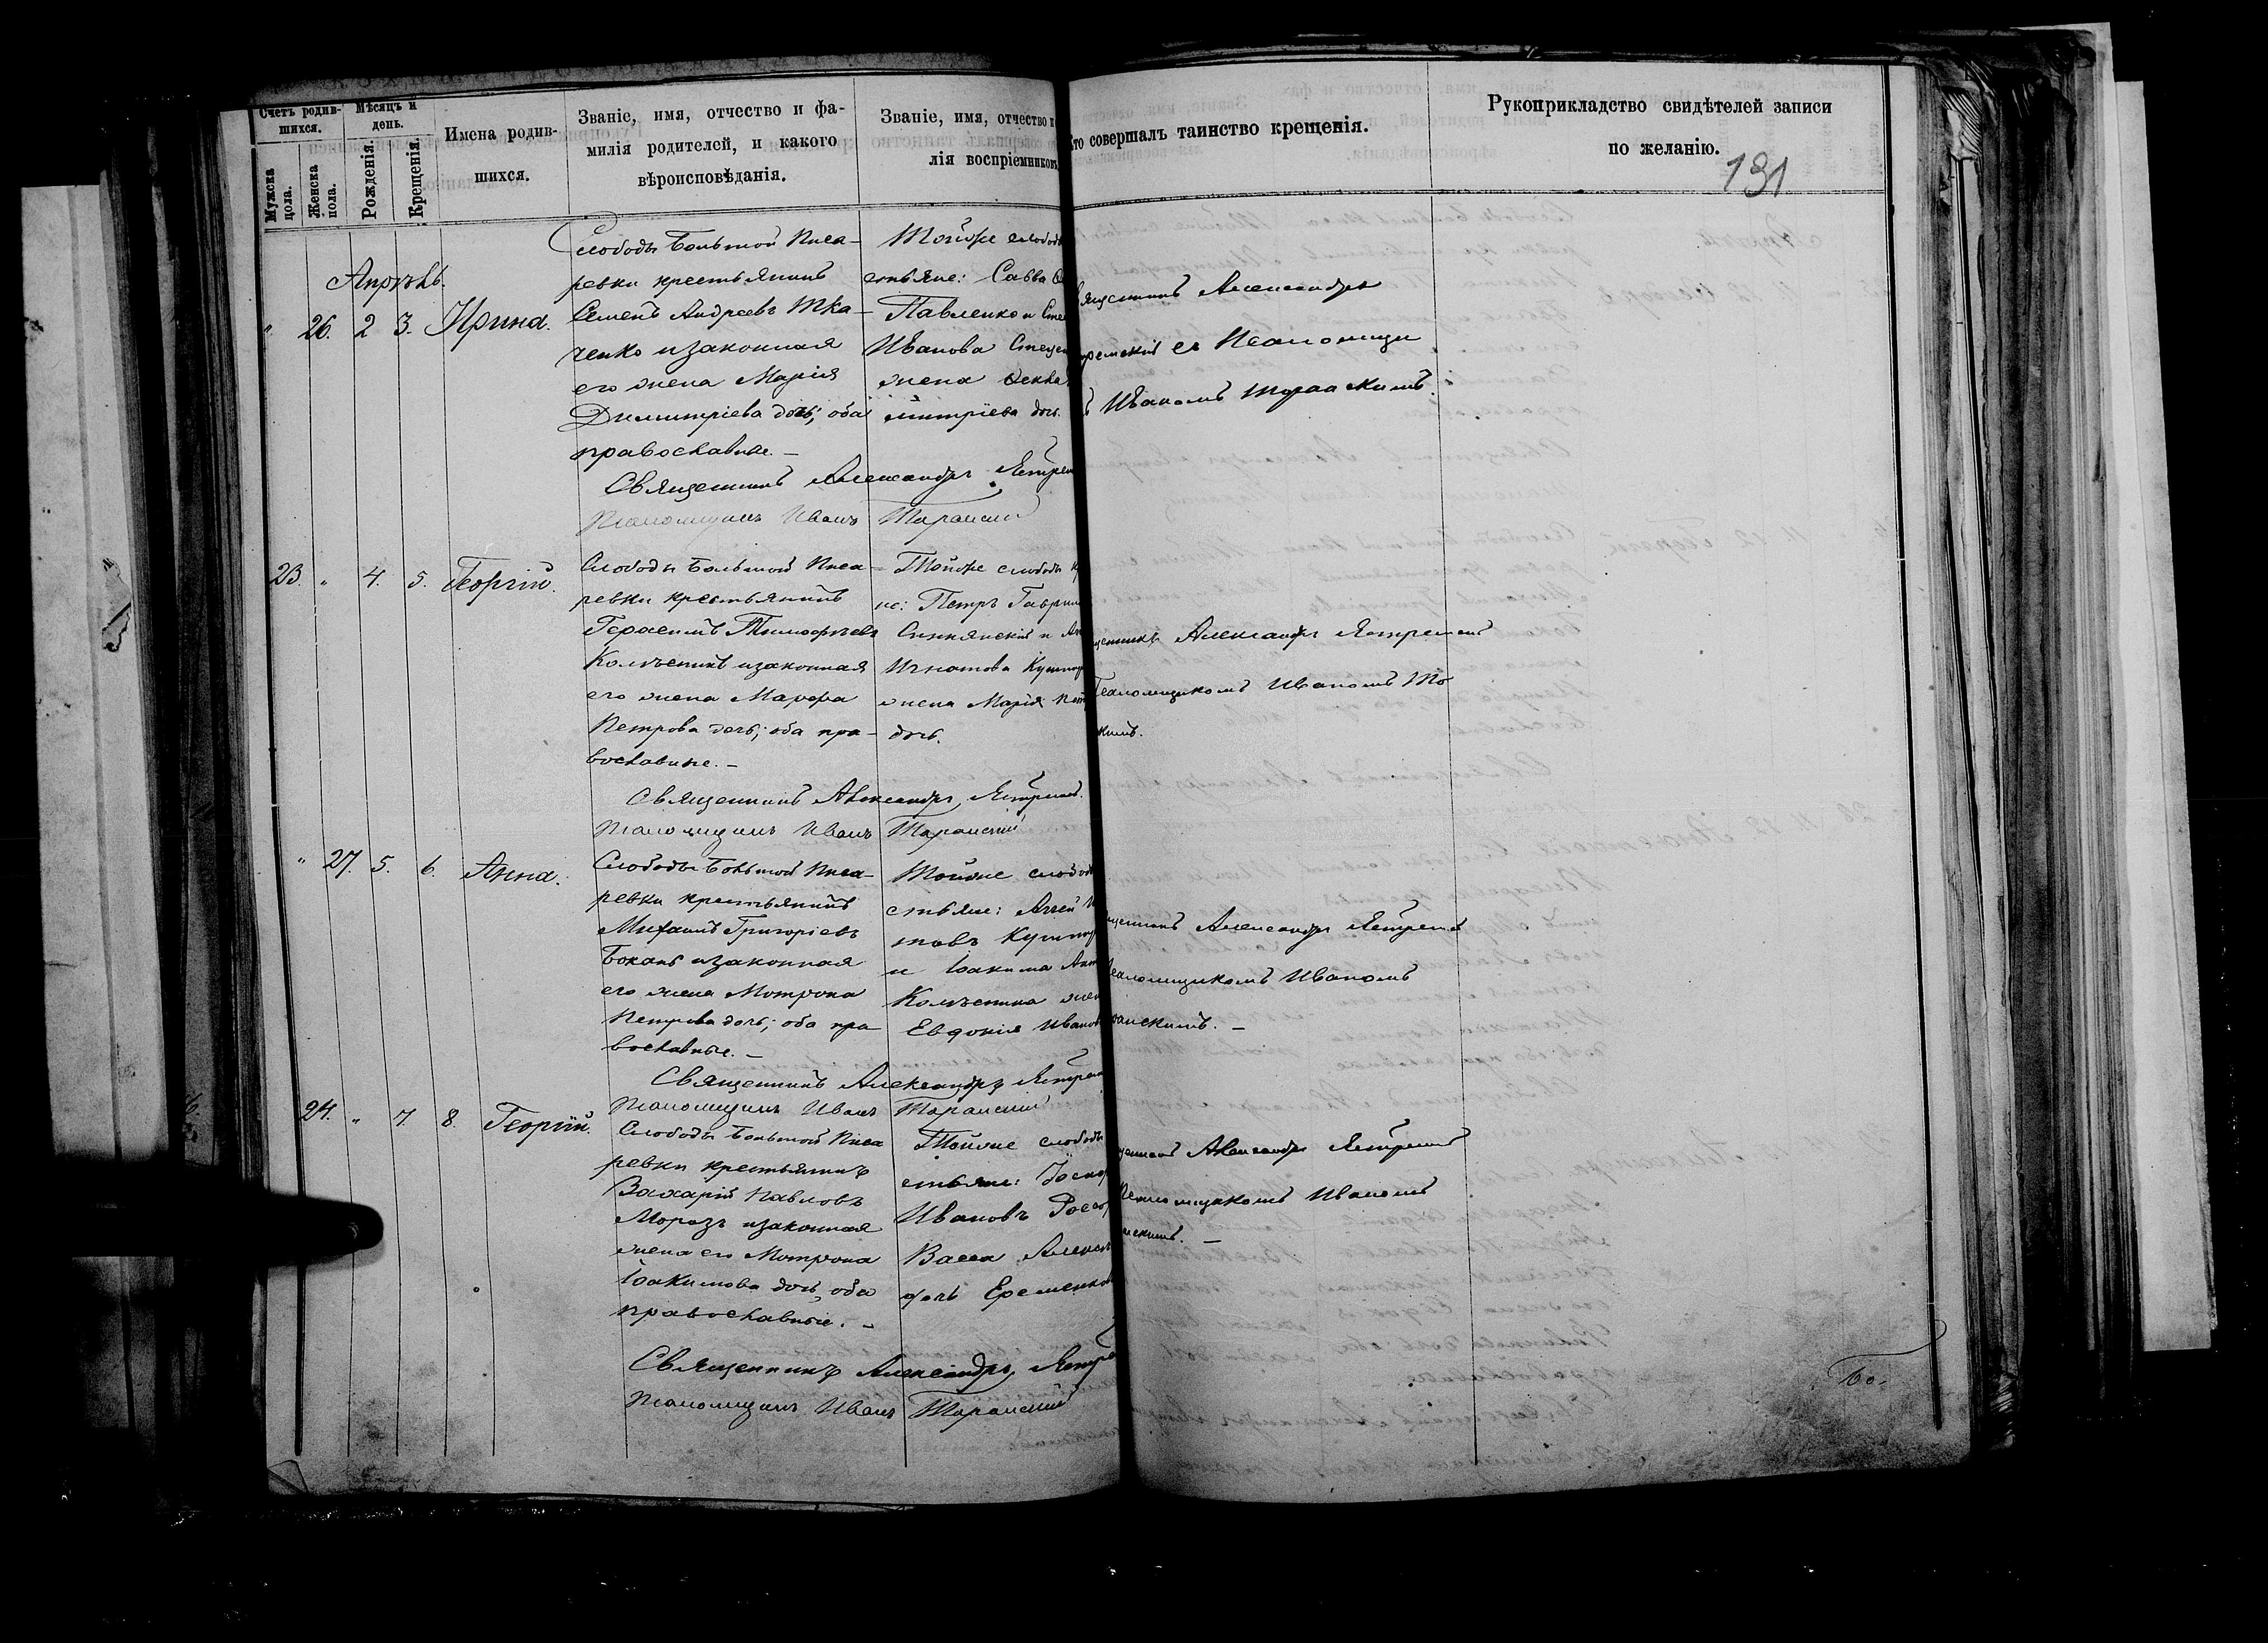 Счетъ родив-
шихся.
Мужска
пола.
Женска
пола.
Мѣсяцъ и
день.
Рожденія.
Крещенія.
Имена родив-
шихся.
Званіе, имя, отчество и фа-
милія родителей, и какого
вѣроисповѣданія.
Званіе, имя, отчество и
лія воспріемниковъ
Кто совершалъ таинство крещенія.
Рукоприкладство свидѣтелей записи
по желанію.
131
Апрѣль.
" 26. 2 3. Ирина.
Слободы Большой Писа-
ревки крестьянинъ
Семенъ Андреевъ Тка-
ченко и законная
его жена Марія
Димитріева дочь; оба
православные. –
Тойже слободы
стьяне: Савва
Павленко и
Иванова
жена
митріева дочь.
Священникъ Александръ
Псаломщикъ Иванъ Торанский
Александръ
съ Псаломщи
Иваномъ
23. " 4. 5. Георгій.
Слободы Большой Писа-
ревки крестьянинъ
Герасимъ Тимофѣевъ
Колѣсникъ и законная
его жена Марфа
Петрова дочь; оба пра-
вославные. –
Тойже слободы
не: Петръ Гаврил
и
Игнатова
жена Марія
дочь.
Священникъ Александръ
Псаломщикъ Иванъ Торанский
Александръ
Псаломщикомъ Иваномъ То
кимъ.
" 27. 5. 6. Анна.
Слободы Большой Писа-
ревки крестьянинъ
Михаилъ Григоріевъ
и законная
его жена Мотрона
Петрова дочь; оба пра-
вославные. –
Тойже слободы
стьяне:
товъ
и Іакима
Колѣсника жен
Евдокія Иванов
Священникъ Александръ
Псаломщикъ Иванъ Торанский
Александръ
Псаломщикомъ Иваномъ
ранскимъ. –
24. " 7. 8. Георгій.
Слободы Большой Писа
ревки крестьянинъ
Захарій Павловъ
Морозъ и законная
жена его Мотрона
Іакимова дочь, оба
православные. –
Тойже слободы
стьяне:
Ивановъ
Васса Алексѣ
дочь Еременков
Священникъ Александръ
Псаломщикъ Иванъ Торанский
Александръ
Псаломщикомъ Иваномъ
нскимъ. –